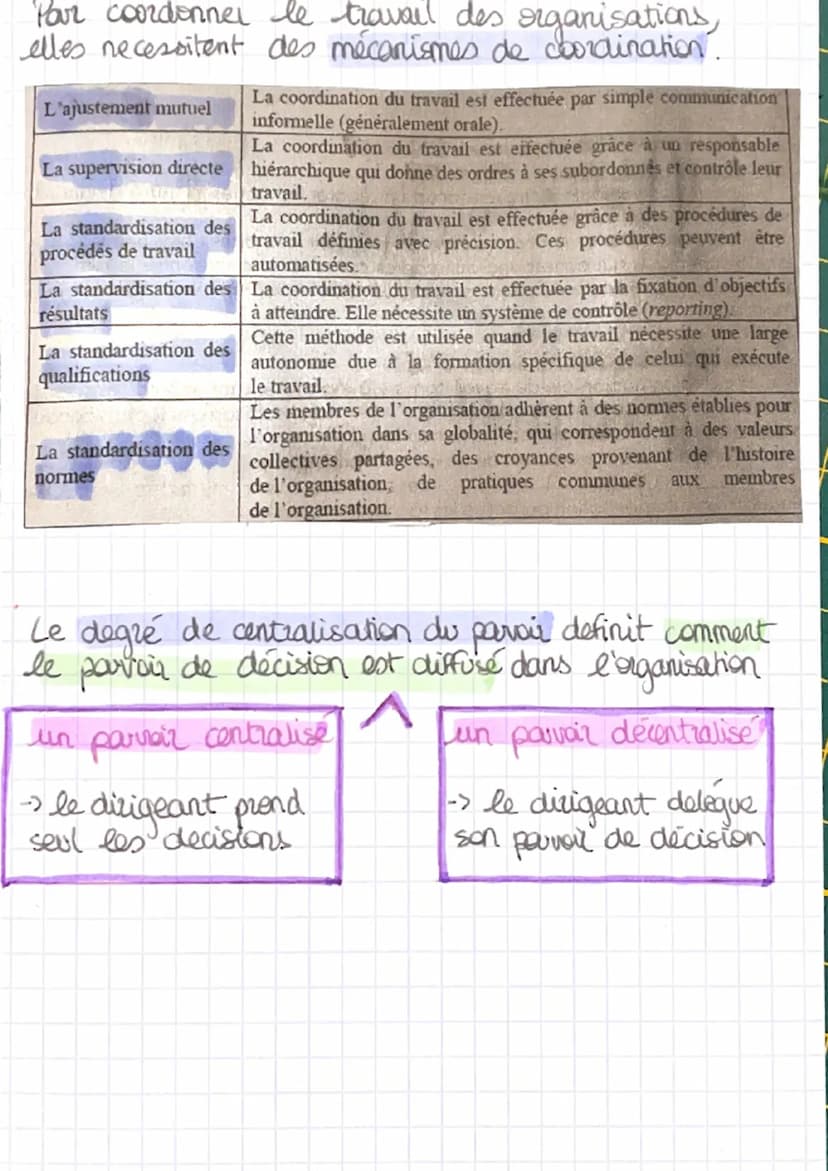 Pour coordonner le travail des organisations,
elles necessitent des mécanismes de coordination.
L'ajustement mutuel
La coordination du travail est effectuée par simple communication
informelle (généralement orale).
La supervision directe
La coordination du travail est effectuée grâce à un responsable
hiérarchique qui donne des ordres à ses subordonnés et contrôle leur
travail.
La standardisation des
procédés de travail
La coordination du travail est effectuée grâce à des procédures de
travail définies avec précision. Ces procédures peuvent être
automatisées.
La standardisation des
résultats
La coordination du travail est effectuée par la fixation d'objectifs
à atteindre. Elle nécessite un système de contrôle (reporting).
La standardisation des
qualifications
Cette méthode est utilisée quand le travail nécessite une large
autonomie due à la formation spécifique de celui qui exécute
le travail.
La standardisation des
normes
Les membres de l'organisation adhèrent à des normes établies pour
l'organisation dans sa globalité, qui correspondent à des valeurs
collectives partagées, des croyances provenant de l'histoire
de l'organisation, de pratiques communes aux membres
de l'organisation.
Le degré de centralisation du pouvoir definit comment
le pouvoir de décision est diffusé dans l'organisation
un pouvoir centralisé
-> le dirigeant prend
seul les decisions
un pouvoir décentralisé
-> le dirigeant delègue
son pouvoir de décision